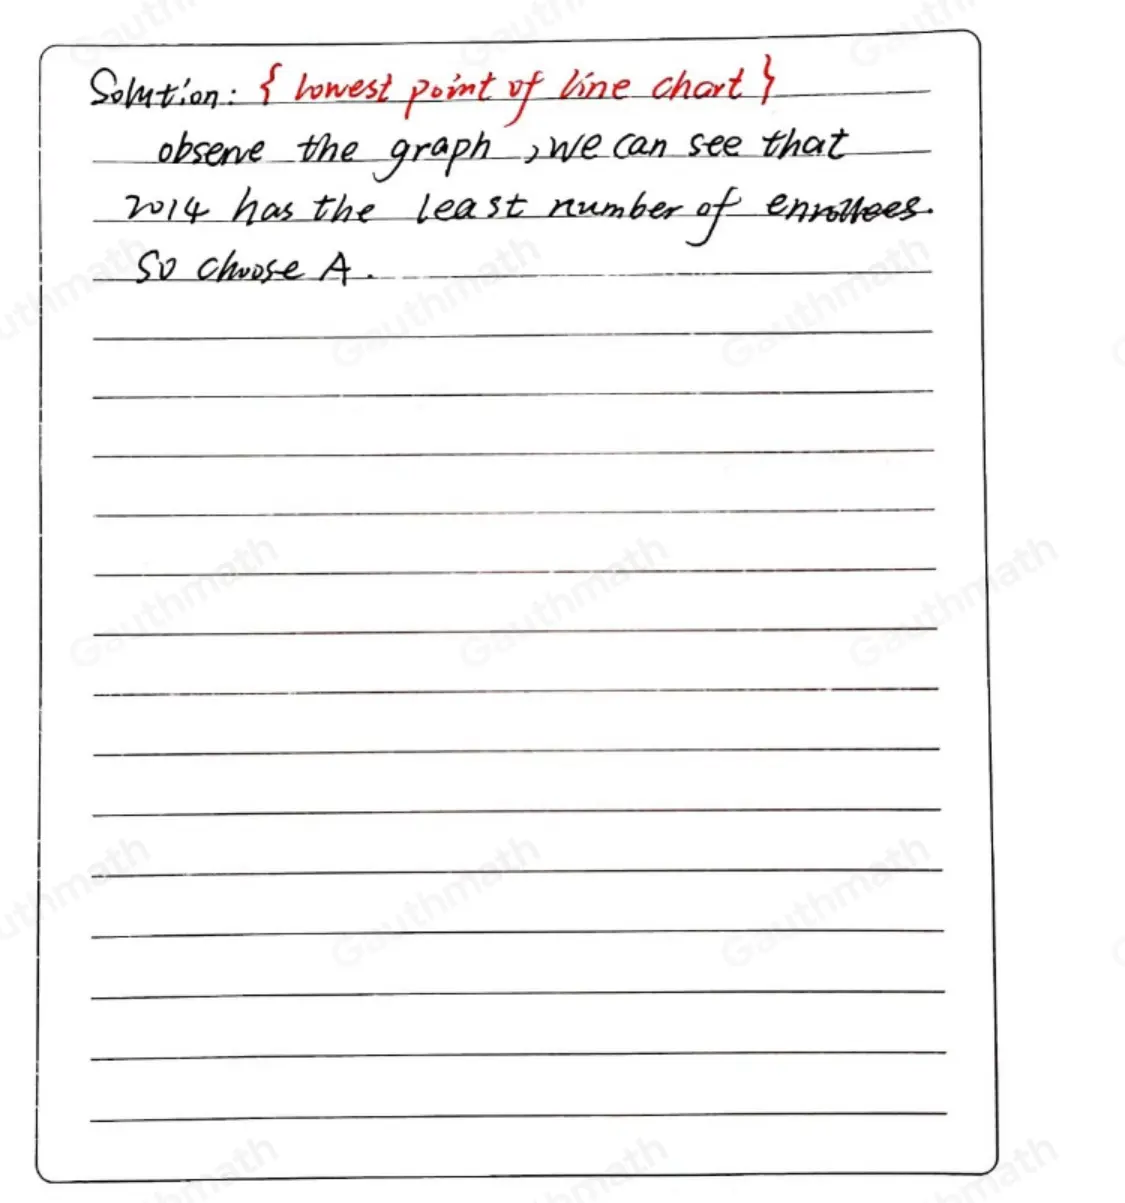 Solution: { lowest point of line chart }
observe the graph, we can see that
2014 has the least number of enrollees.
So choose A.
Gauthmath